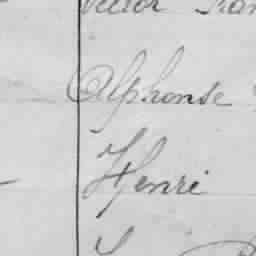 Victor
Alphonse
Henri